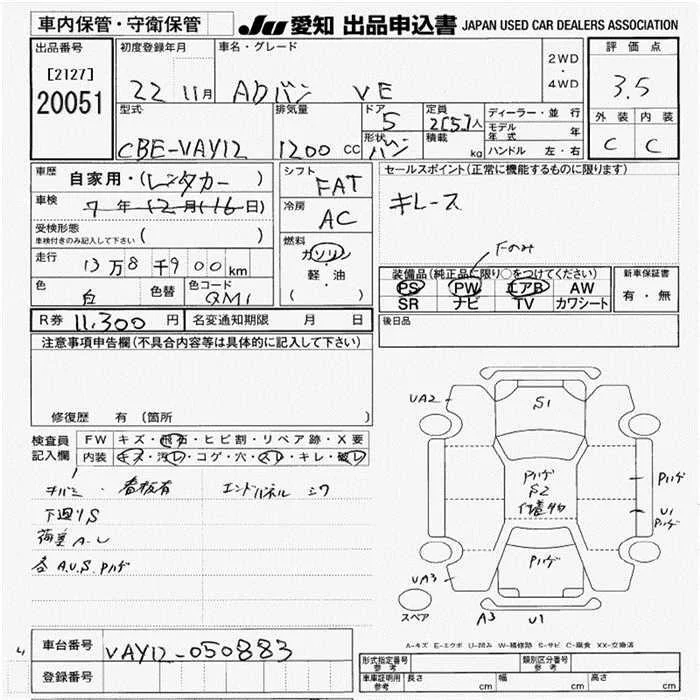 車内保管・守衛保管
JU 愛知 出品申込書 JAPAN USED CAR DEALERS ASSOCIATION
出品番号
[2127]
20051
初度登録年月
22 11月
車名・グレード
ADバン VE
2WD
・
4WD
評価点
3.5
外装 内装
C C
型式
CBE-VAY12
排気量
1200 cc
ドア
5
形状
バン
定員
2[5]人
積載
kg
ディーラー・並行
モデル年式 年
ハンドル 左・右
車歴
自家用・(レンタカー )
車検
7年12月(16日)
受検形態
車検付きのみ記入して下さい ( )
走行
13万8千900km
色
白
色替
色コード
QM1
シフト
FAT
冷房
AC
燃料
ガソリン
・
軽・油
( )
セールスポイント(正常に機能するものに限ります)
キレース
Fのみ
装備品(純正品に限り○をつけてください)
PS PW エアB AW
SR ナビ TV カワシート
新車保証書
有・無
R券 11,300 円
名変通知期限 月 日
後日品
注意事項申告欄(不具合内容等は具体的に記入して下さい)
修復歴 有 (箇所 )
検査員記入欄
FW キズ・飛石・ヒビ割・リペア跡・X要
内装 キズ・汚レ・コゲ・穴・スレ・キレ・破レ
キバミ・看板有 エンドパネル シワ
下廻りS
荷室 A-U
各 A.U.S. Pハゲ
UA2
S1
Pハゲ
S2
付着物
Pハゲ
U1
Pハゲ
Pハゲ
UA3
スペア
A3
U1
A-キズ E-エクボ U-凹み W-補修跡 S-サビ C-腐食 XX-交換済
車台番号
VAY12-050883
登録番号
形式指定番号
参考
類別区分番号
参考
車庫証明用
参考
長さ cm
幅 cm
高さ cm